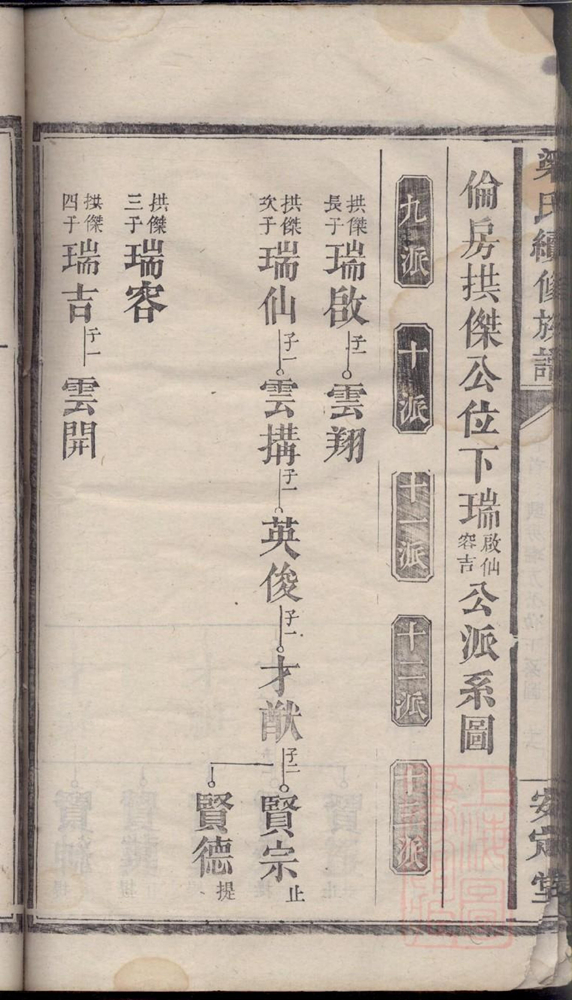 梁氏續修族譜
安定堂
倫房拱傑公位下瑞啟仙容吉公派系圖
九派 十派 十一派 十二派 十三派
拱傑長子 瑞啟 子一 雲翔
拱傑次子 瑞仙 子一 雲搆 子一 英俊 子一 才猷 子二 賢宗 止
賢德 提
拱傑三子 瑞容
拱傑四子 瑞吉 子一 雲開